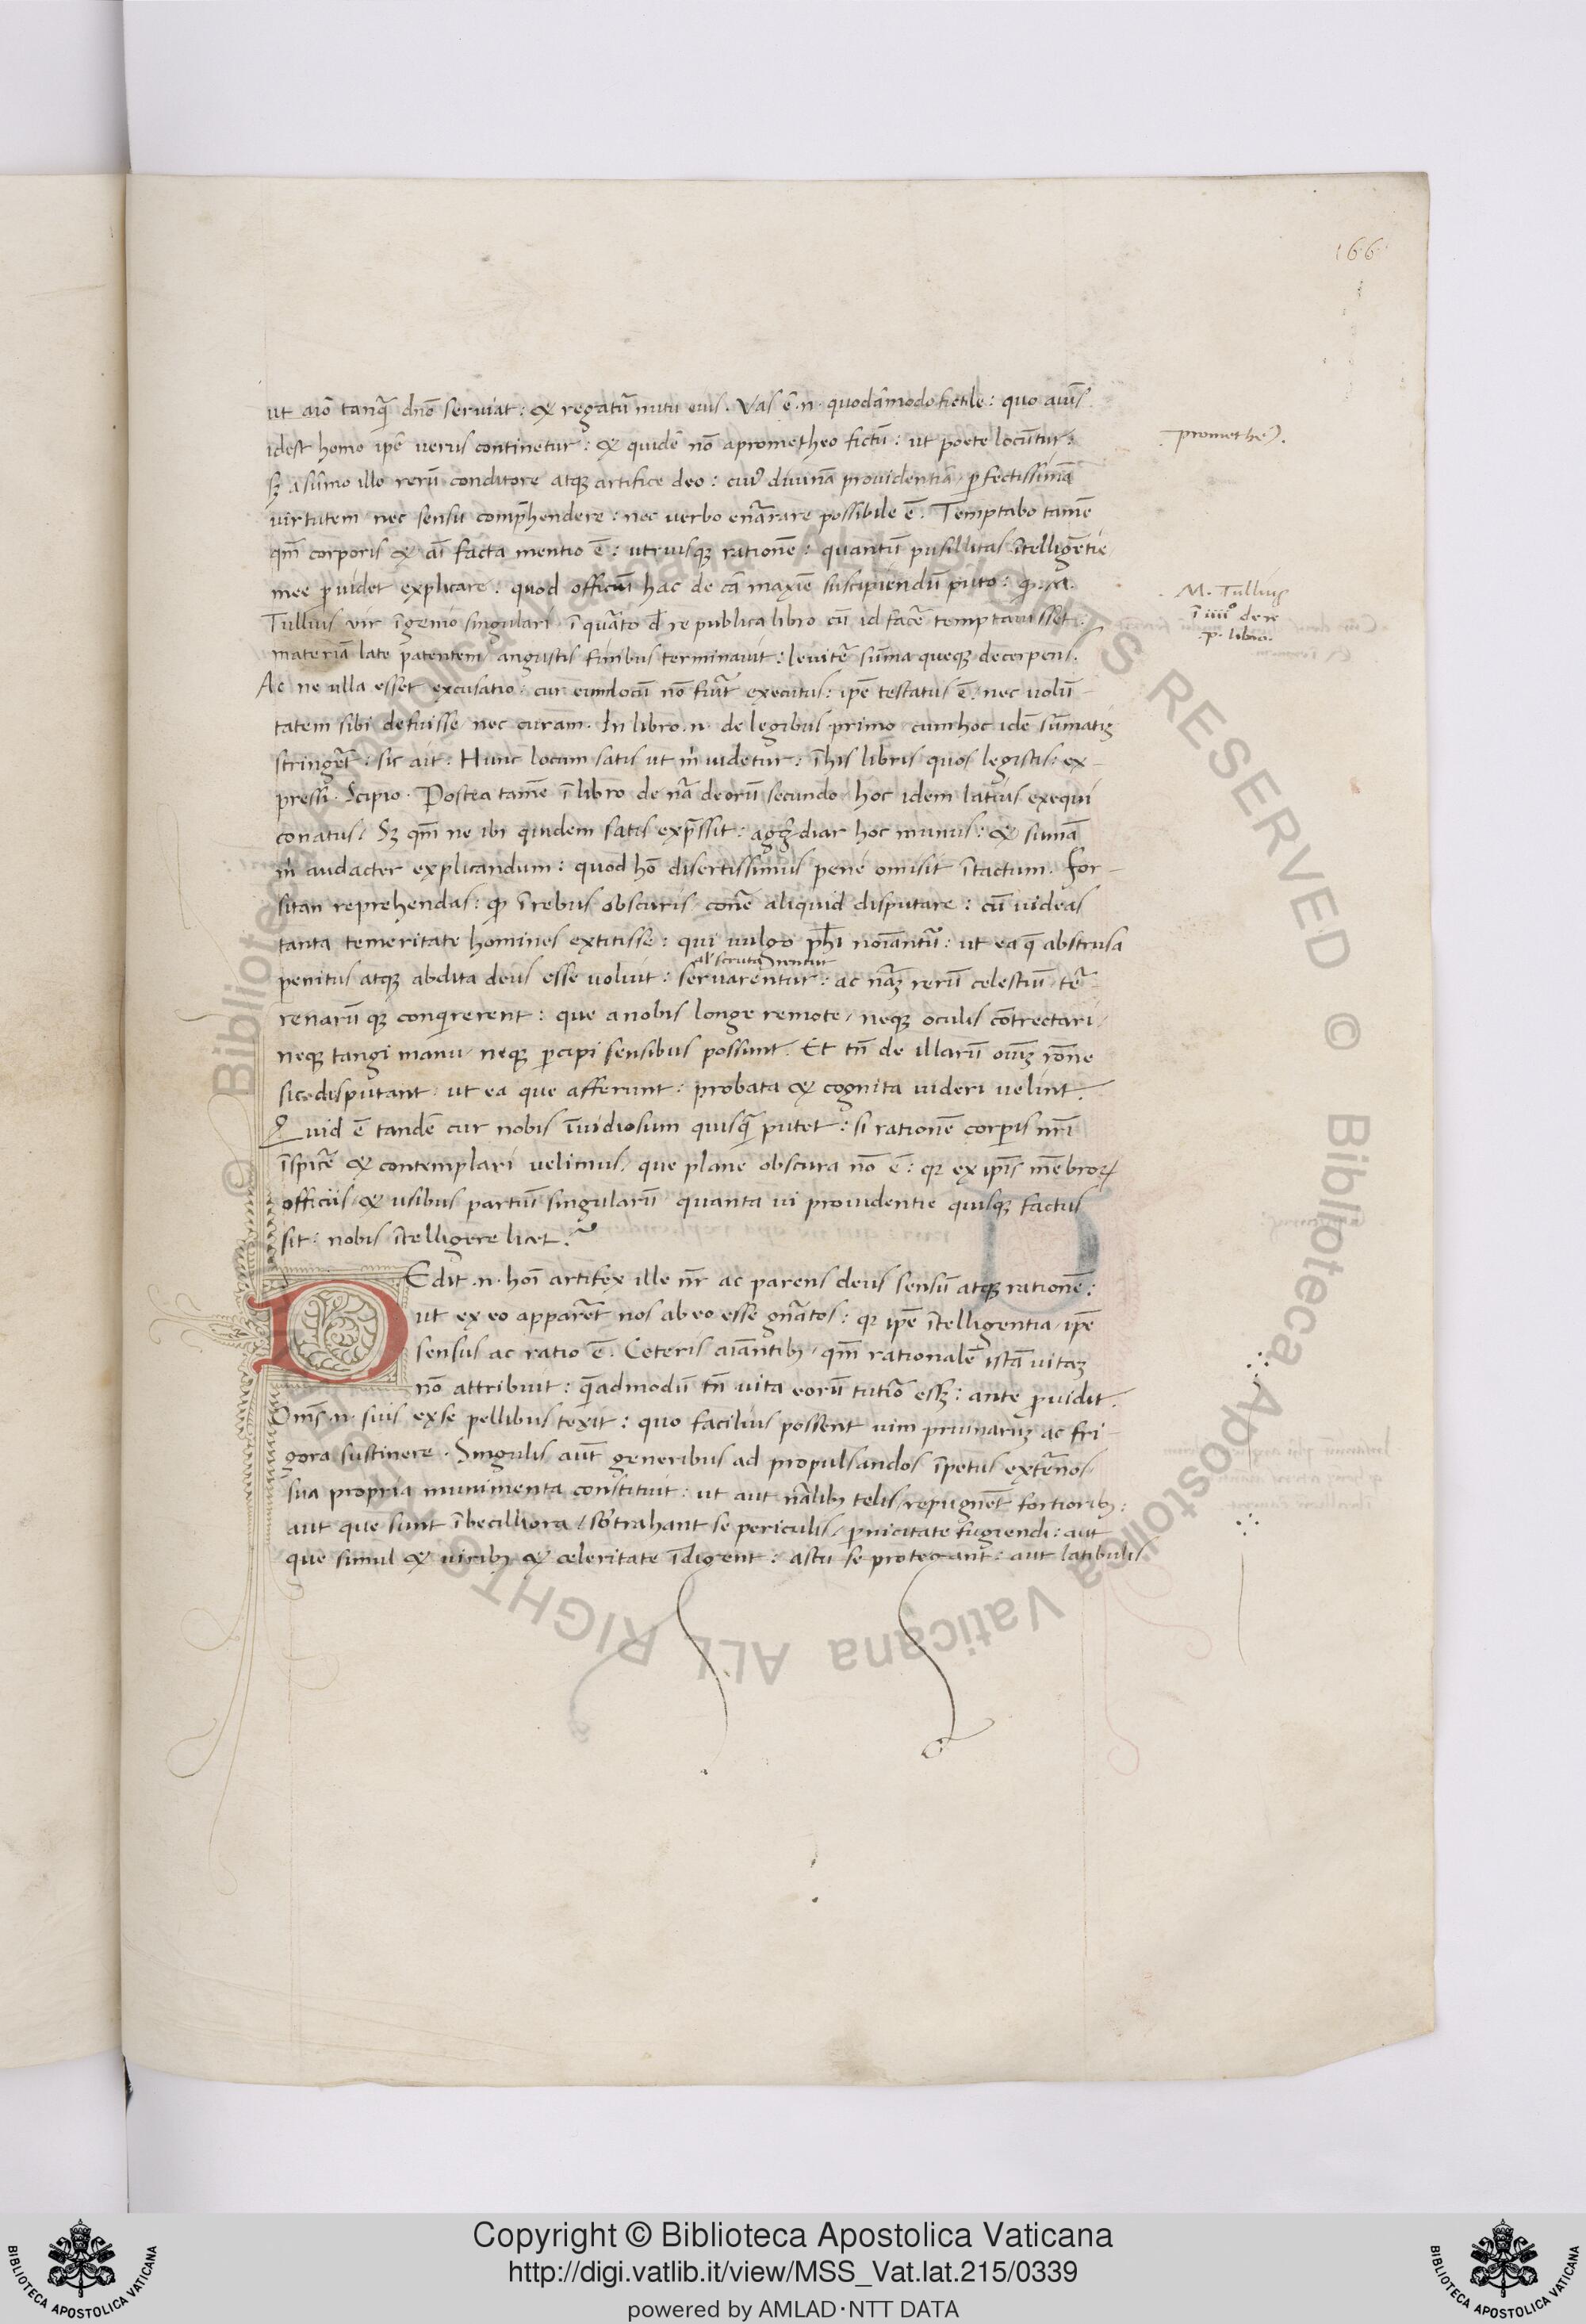 166
ut aīo tanq̄ dño serviat: & regatū nutu eius. Vas ē .n. quodāmodo fictile: quo aīus
idest homo ipē verus continetur: & quidē nō aprometheo fictū: ut poete locūtur:
promethe⁹.
sꝫ a sūmo illo rerū conditore atqꝫ artifice deo: cui⁹ divinā providentiā ꝑfectissimā
virtutem nec sensu comp̄hendere: nec verbo enārrare possibile ē. Temptabo tamē
qm̄ corporis & aī facta mentio ē: utriusqꝫ rationē: quantū pusillitas ītelligētie
mee ꝑvidet explicare: quod officiū hac de cā maxīe suscipiendū puto: ꝙ .M.
M. Tullius
ī iiiiº de re
.p. libro.
Tullius vir īgenio singulari ī quārto dē re publica libro cū id facē temptavisset:
materiā late p̄atentem angustis finibus terminavit: levitē sūma queqꝫ decerpens.
Ac ne ulla esset excusatio cur eum locū nō fuāt executus: ipē testatus ē: nec volū-
tatem sibi defuisse nec curam. In libro .n. de legibus primo cum hoc idē sūmatiꝫ
stringēt: sic ait: Hunc locum satis ut m̄ videtur: ī his libris quos legistis: ex-
pressi Scipio. Postea tamē ī libro de nā deorū secundo hoc idem latius exequi
conatus. Sꝫ qm̄ ne ibi quidem satis exp̄ssit: agḡdiar hoc munus: & sumā
m̄ audacter explicandum: quod hō disertissimus pene omisit ītactum. For-
sitan reprehendas: ꝙ ī rebus obscuris conē aliquid disputare: cū videas
tanta temeritate homines extitisse: qui vulgo phī noīantur: ut ea q̄ abstrusa
penitus atqꝫ abdita deus esse voluit: servarentur: ac nāꝫ rerū celestiū tē-
renarū qꝫ conqrerent: que a nobis longe remote neqꝫ oculis cōntrectari
neqꝫ tangi manu neqꝫ ꝑcipi sensibus possunt. Et tn̄ de illarū oīuꝫ rōne
sic disputant: ut ea que afferunt: probata & cognita videri velint.
Quid ē tandē cur nobis īvidiosum quisq̄ putet: si rationē corpis nr̄i
īspicē & contemplari velimus, que plane obscura nō ē: qꝛ ex ipīs mēbroꝝ
officiis & usibus partiū singularū quanta vi providentie quisqꝫ factus
sit: nobis ītelligere licet.
DEdit .n. hoī artifex ille nr̄ ac parens deus sensū atqꝫ rationē:
ut ex eo apparēt nos ab eo esse gn̄atos: qꝛ ipē ītelligentia ipē
sensus ac ratio ē. Ceteris aīantibꝫ, qm̄ rationalē istā vitaꝫ
nō attribuit: q̄admodū tn̄ vita eorū tutīo essꝫ: ante ꝓvidit.
Omīs .n. suis ex se pellibus texit: quo facilius possent vim pruinaruꝫ ac fri-
gora sustinere. Singulis aūt generibus ad propulsandos īpetus extērnos
sua propria munimenta constituit: ut aut nālibꝫ telis repugnēt fortioribꝫ:
aut que sunt ībecilliora, sb̄trahant se periculis ꝑnicitate fugiendi: aut
que simul & viribꝫ & celeritate īdigent: astu se protegant: aut latibulis
Copyright © Biblioteca Apostolica Vaticana
http://digi.vatlib.it/view/MSS_Vat.lat.215/0339
powered by AMLAD·NTT DATA